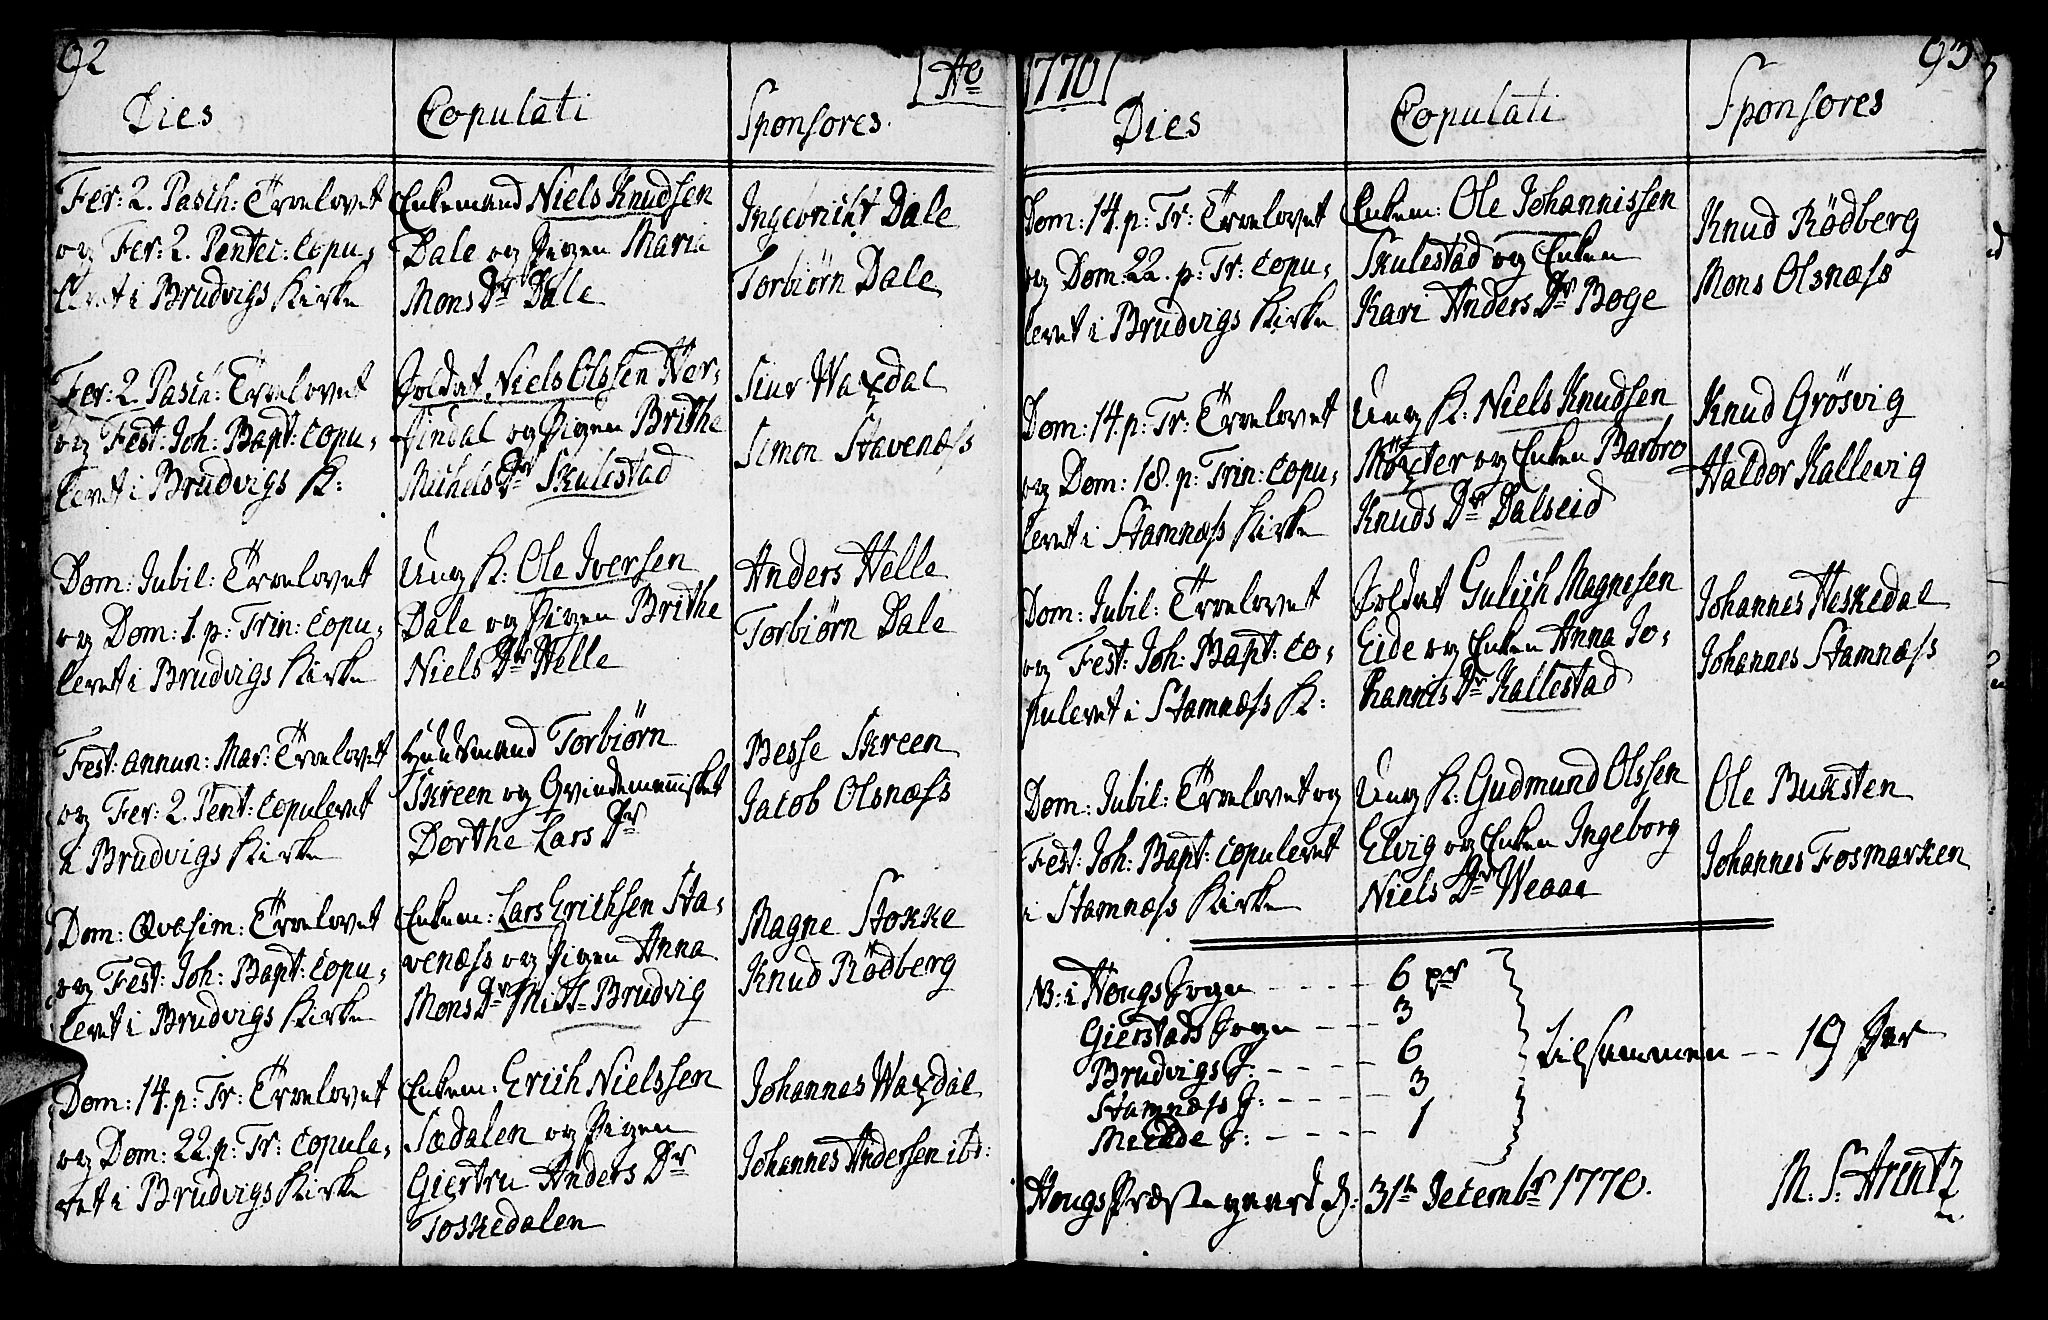 92
Ao
Dies
Copulati
Sponsores
Fer: 2. Pasch: Trolovet
og Fer: 2. Pentec: Copu,
leret i Brudvigs Kirke
Enkemand Niels Knudsen
Dale og Pigen Maria
Mons Dr Dale
Ingebricht Dale
Torbiørn Dale
Fer: 2. Pasch: Trolovet
og Fest: Joh: Bapt: Copu,
leret i Brudvigs K:
Soldat, Niels Olssen Her,
findal og Pigen Brithe
Michels Dr Skulestad
Siur Waxdal
Simon Stavenæss
Dom: Jubil: Trolovet
og Dom: 1. p: Trin: Copu,
leret i Brudvigs Kirke
Ung K: Ole Iversen
Dale og Pigen Brithe
Niels Dr Helle
Anders Helle
Torbiørn Dale
Fest: Annun: Mar: Trolovet
og Fer: 2. Pent: Copuleret
i Brudvigs Kirke
Huusmand Torbiørn
Skreen og Qvindemennisket
Dorthe Lars Dr
Besse Skreen
Jacob Olsnæss
Dom: Qvasim: Trolovet
og Fest: Joh: Bapt: Copu,
leret i Brudvigs Kirke
Enkem: Lars Erichsen Sta,
venæss og Pigen Anna
Mons Dr Mitt-Brudvig
Magne Stokke
Knud Rödberg
Dom: 14. p: Tr: Trolovet
og Dom: 22. p: Tr: Copule,
ret i Brudvigs Kirke
Enkem: Erich Nielssen
Sædalen og Pigen
Giertru Anders Dr
Toskedalen
Johannes Waxdal
Johannes Andersen ibd:
1770
93
Dies
Copulati
Sponsores
Dom: 14. p: Tr: Trolovet
og Dom: 22. p: Tr: Copu,
leret i Brudvigs Kirke
Enkem: Ole Johannissen
Skulestad og Enken
Kari Anders Dr Boge
Knud Rödberg
Mons Olsnæss
Dom: 14. p: Tr: Trolovet
og Dom: 18. p: Trin: Copu,
leret i Stamnæss Kirke
Ung K: Niels Knudsen
Möxter og Enken Barbro
Knuds Dr Dalseid
Knud Grösvig
Haldor Kallevig
Dom: Jubil: Trolovet
og Fest: Joh: Bapt: Co,
puleret i Stamnæss K:
Soldat Gulich Magnesen
Eide og Enken Anna Jo,
hannis Dr Kallestad
Johannes Heskedal
Johannes Stamnæss
Dom: Jubil: Trolovet og
Fest: Joh: Bapt: Copuleret
i Stamnæss Kirke
Ung K: Gudmund Olssen
Elvig og Enken Ingeborg
Niels Dr Weaaa
Ole Buksten
Johannes Fosmarken
NB: i Hougs Sogn - - - - - 6 pr
Gierstads Sogn - - - - 3
Brudvigs S: - - - - - 6
Stamnæss S: - - - - - 3
Meelde S: - - - - - 1
tilsammen - - 19 Par
Hougs Præstegaard d: 31te Decembr 1770.
M. S: Arentz